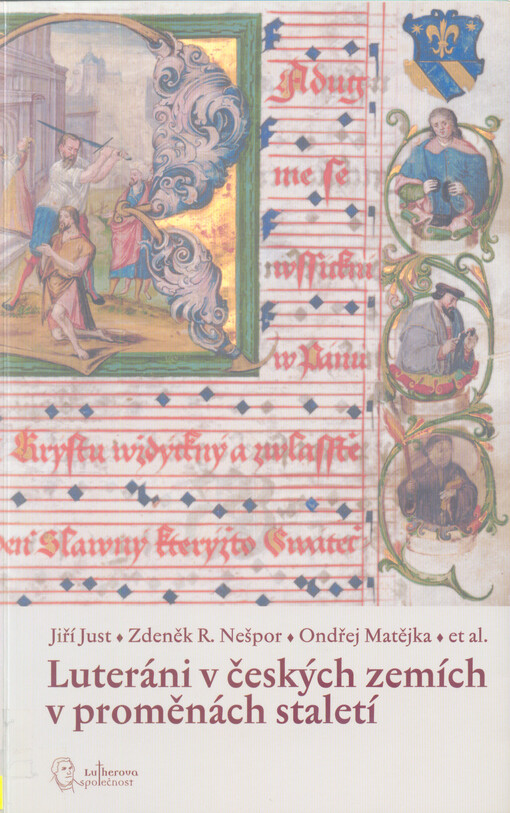 Radug
me se
wssickni
w Pánu
Krystu wżdyckny a zwlasstě
den Slawny kteryżto Cwiteď
Jiří Just ♦ Zdeněk R. Nešpor ♦ Ondřej Matějka ♦ et al.
Luteráni v českých zemích
v proměnách staletí
Lutherova
společnost